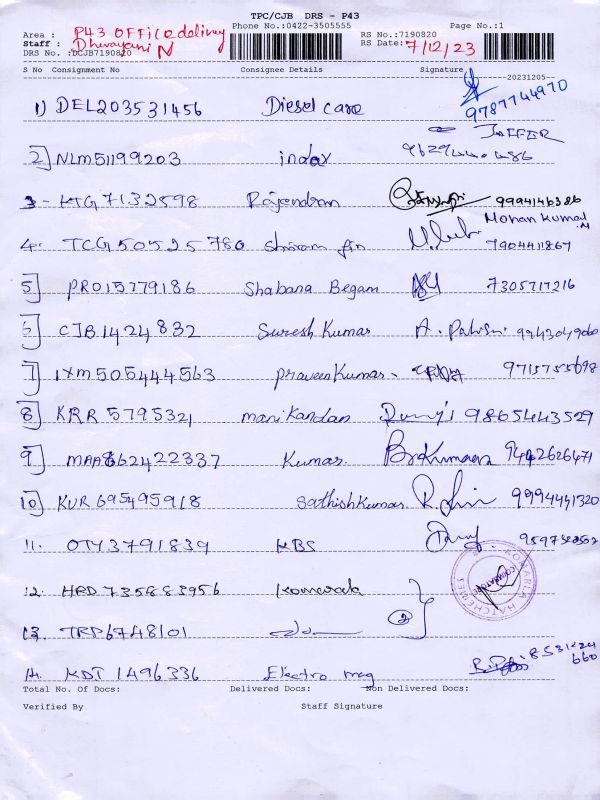 TPC/CJB DRS - P43
Phone No.:0422-3505555 Page No.:1
Area : P43 Office delivery
Staff : Dhevayani N
DRS No. :DCJB7190820
RS No.:7190820
RS Date: 7/12/23
S No Consignment No Consignee Details Signature
20231205
1) DEL203531456 Diesel care 9787744970
JAFFER
2] NLM51199203 index
3 - KTG7132598 Rajendran 9994146386
4. TCG50525780 Shriram fin Mohan Kumar M 7904411867
5] PRO15779186 Shabana Begam 7305717216
6] CJB1424832 Suresh Kumar
7] IXM505444563 Praveen Kumar. 9715755698
8] KRR 5795321 mani Kandan 9865443529
9] MAA662422337 Kumar. 9442626471
10] KUR 695495918 Sathish Kumar 9994441320
11. OTY3791839 KBS
12. HRD 735883956
13. TRP6748101 2
14. KDT 1496336 Electro mag 8531424660
KOMARLA HATCHERIES
COIMBATORE
Total No. Of Docs: Delivered Docs: Non Delivered Docs:
Verified By Staff Signature